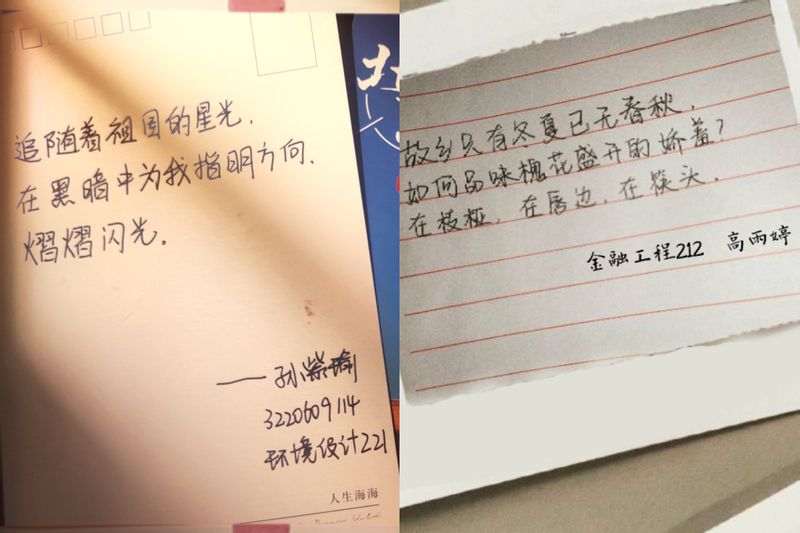 追随着祖国的星光，
在黑暗中为我指明方向，
熠熠闪光。
——孙紫瑜
3220609114
环境设计221
人生海海
故乡只有冬夏已无春秋，
如何品味槐花盛开的娇羞？
在枝桠，在唇边，在筷头。
金融工程212 高雨婷